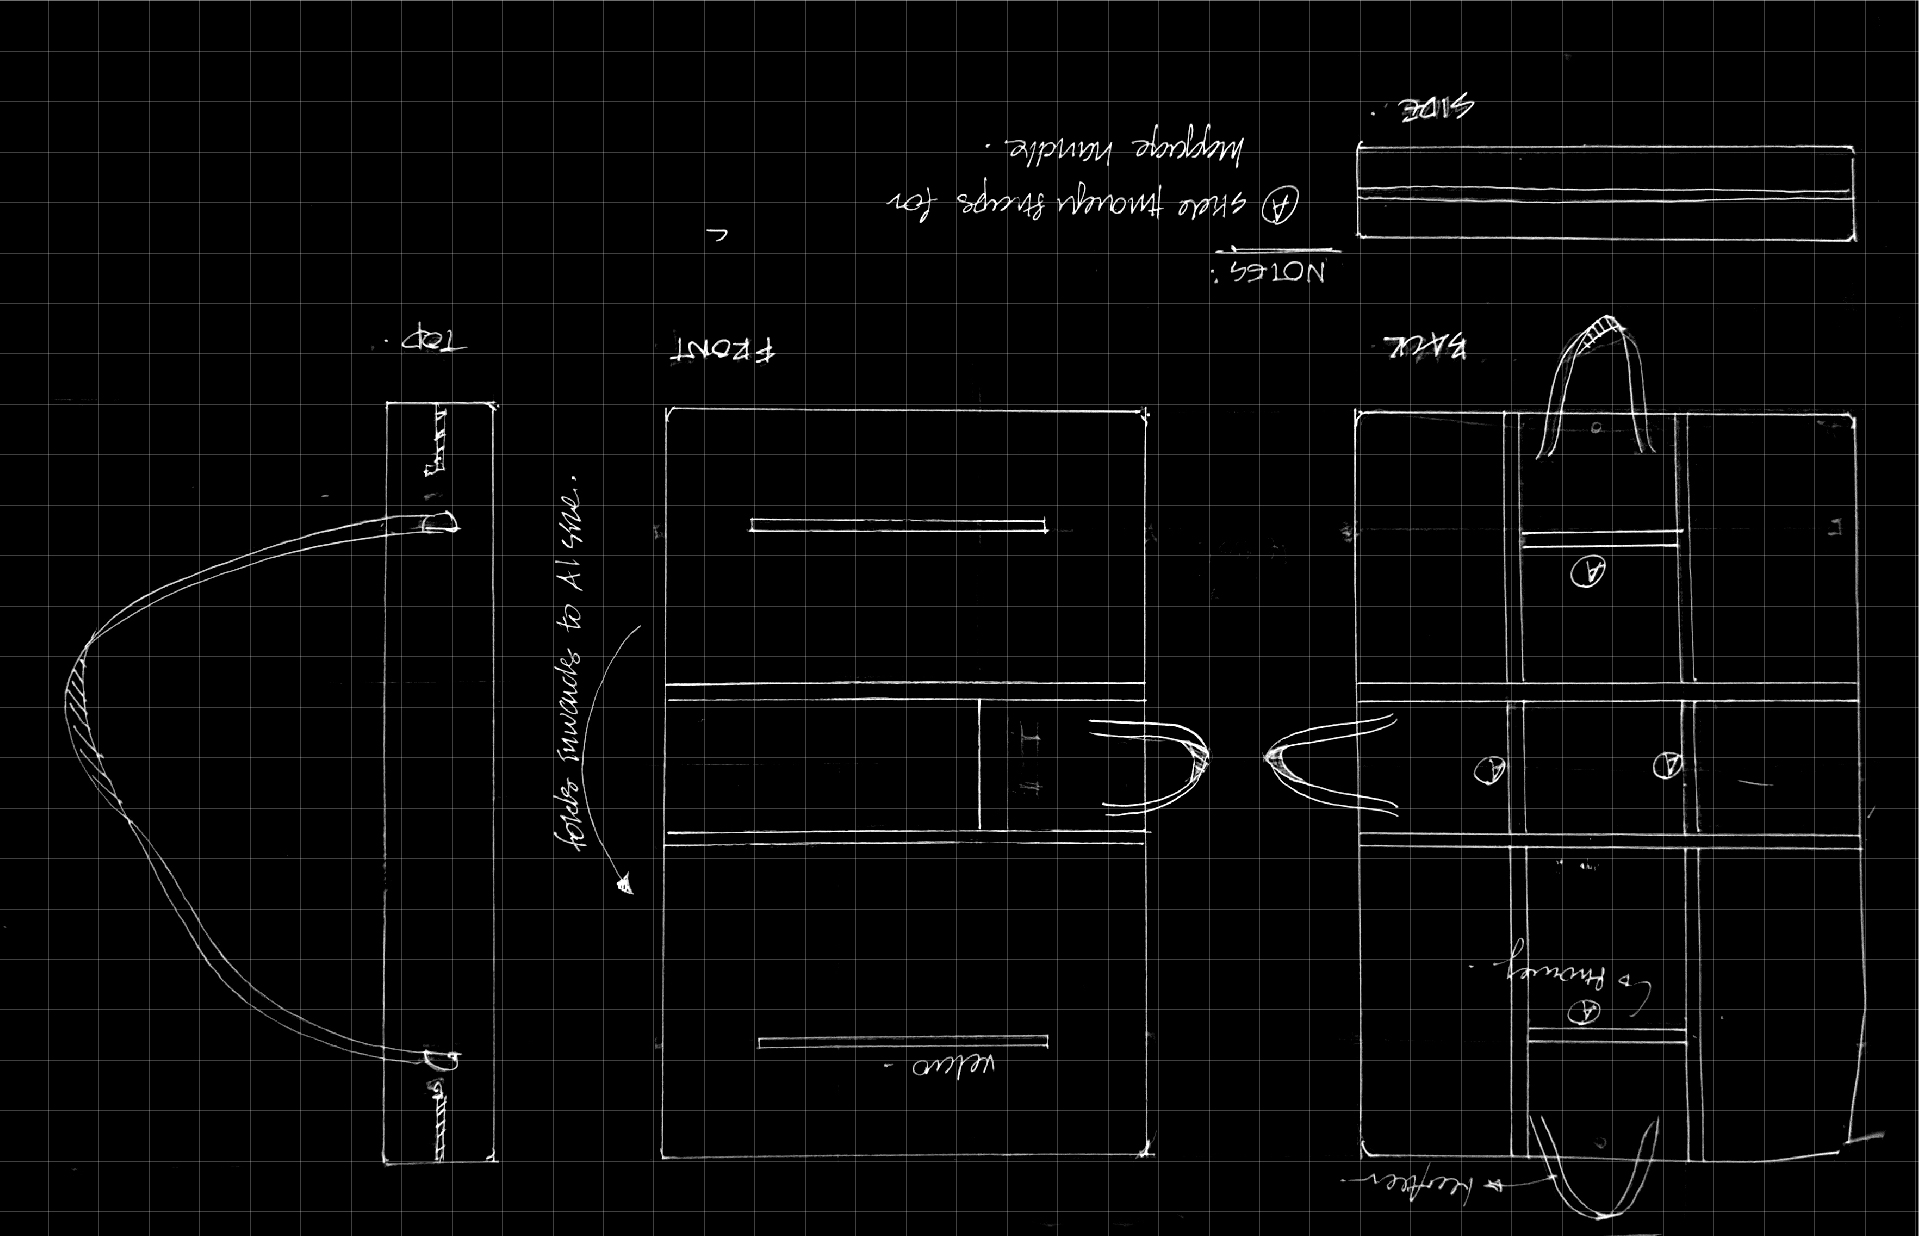 leather.
A
velcro.
A
A
A
folds inwards to A1 size.
BACK
FRONT
TOP.
NOTES:
A slide through straps for
luggage handle.
SIDE.